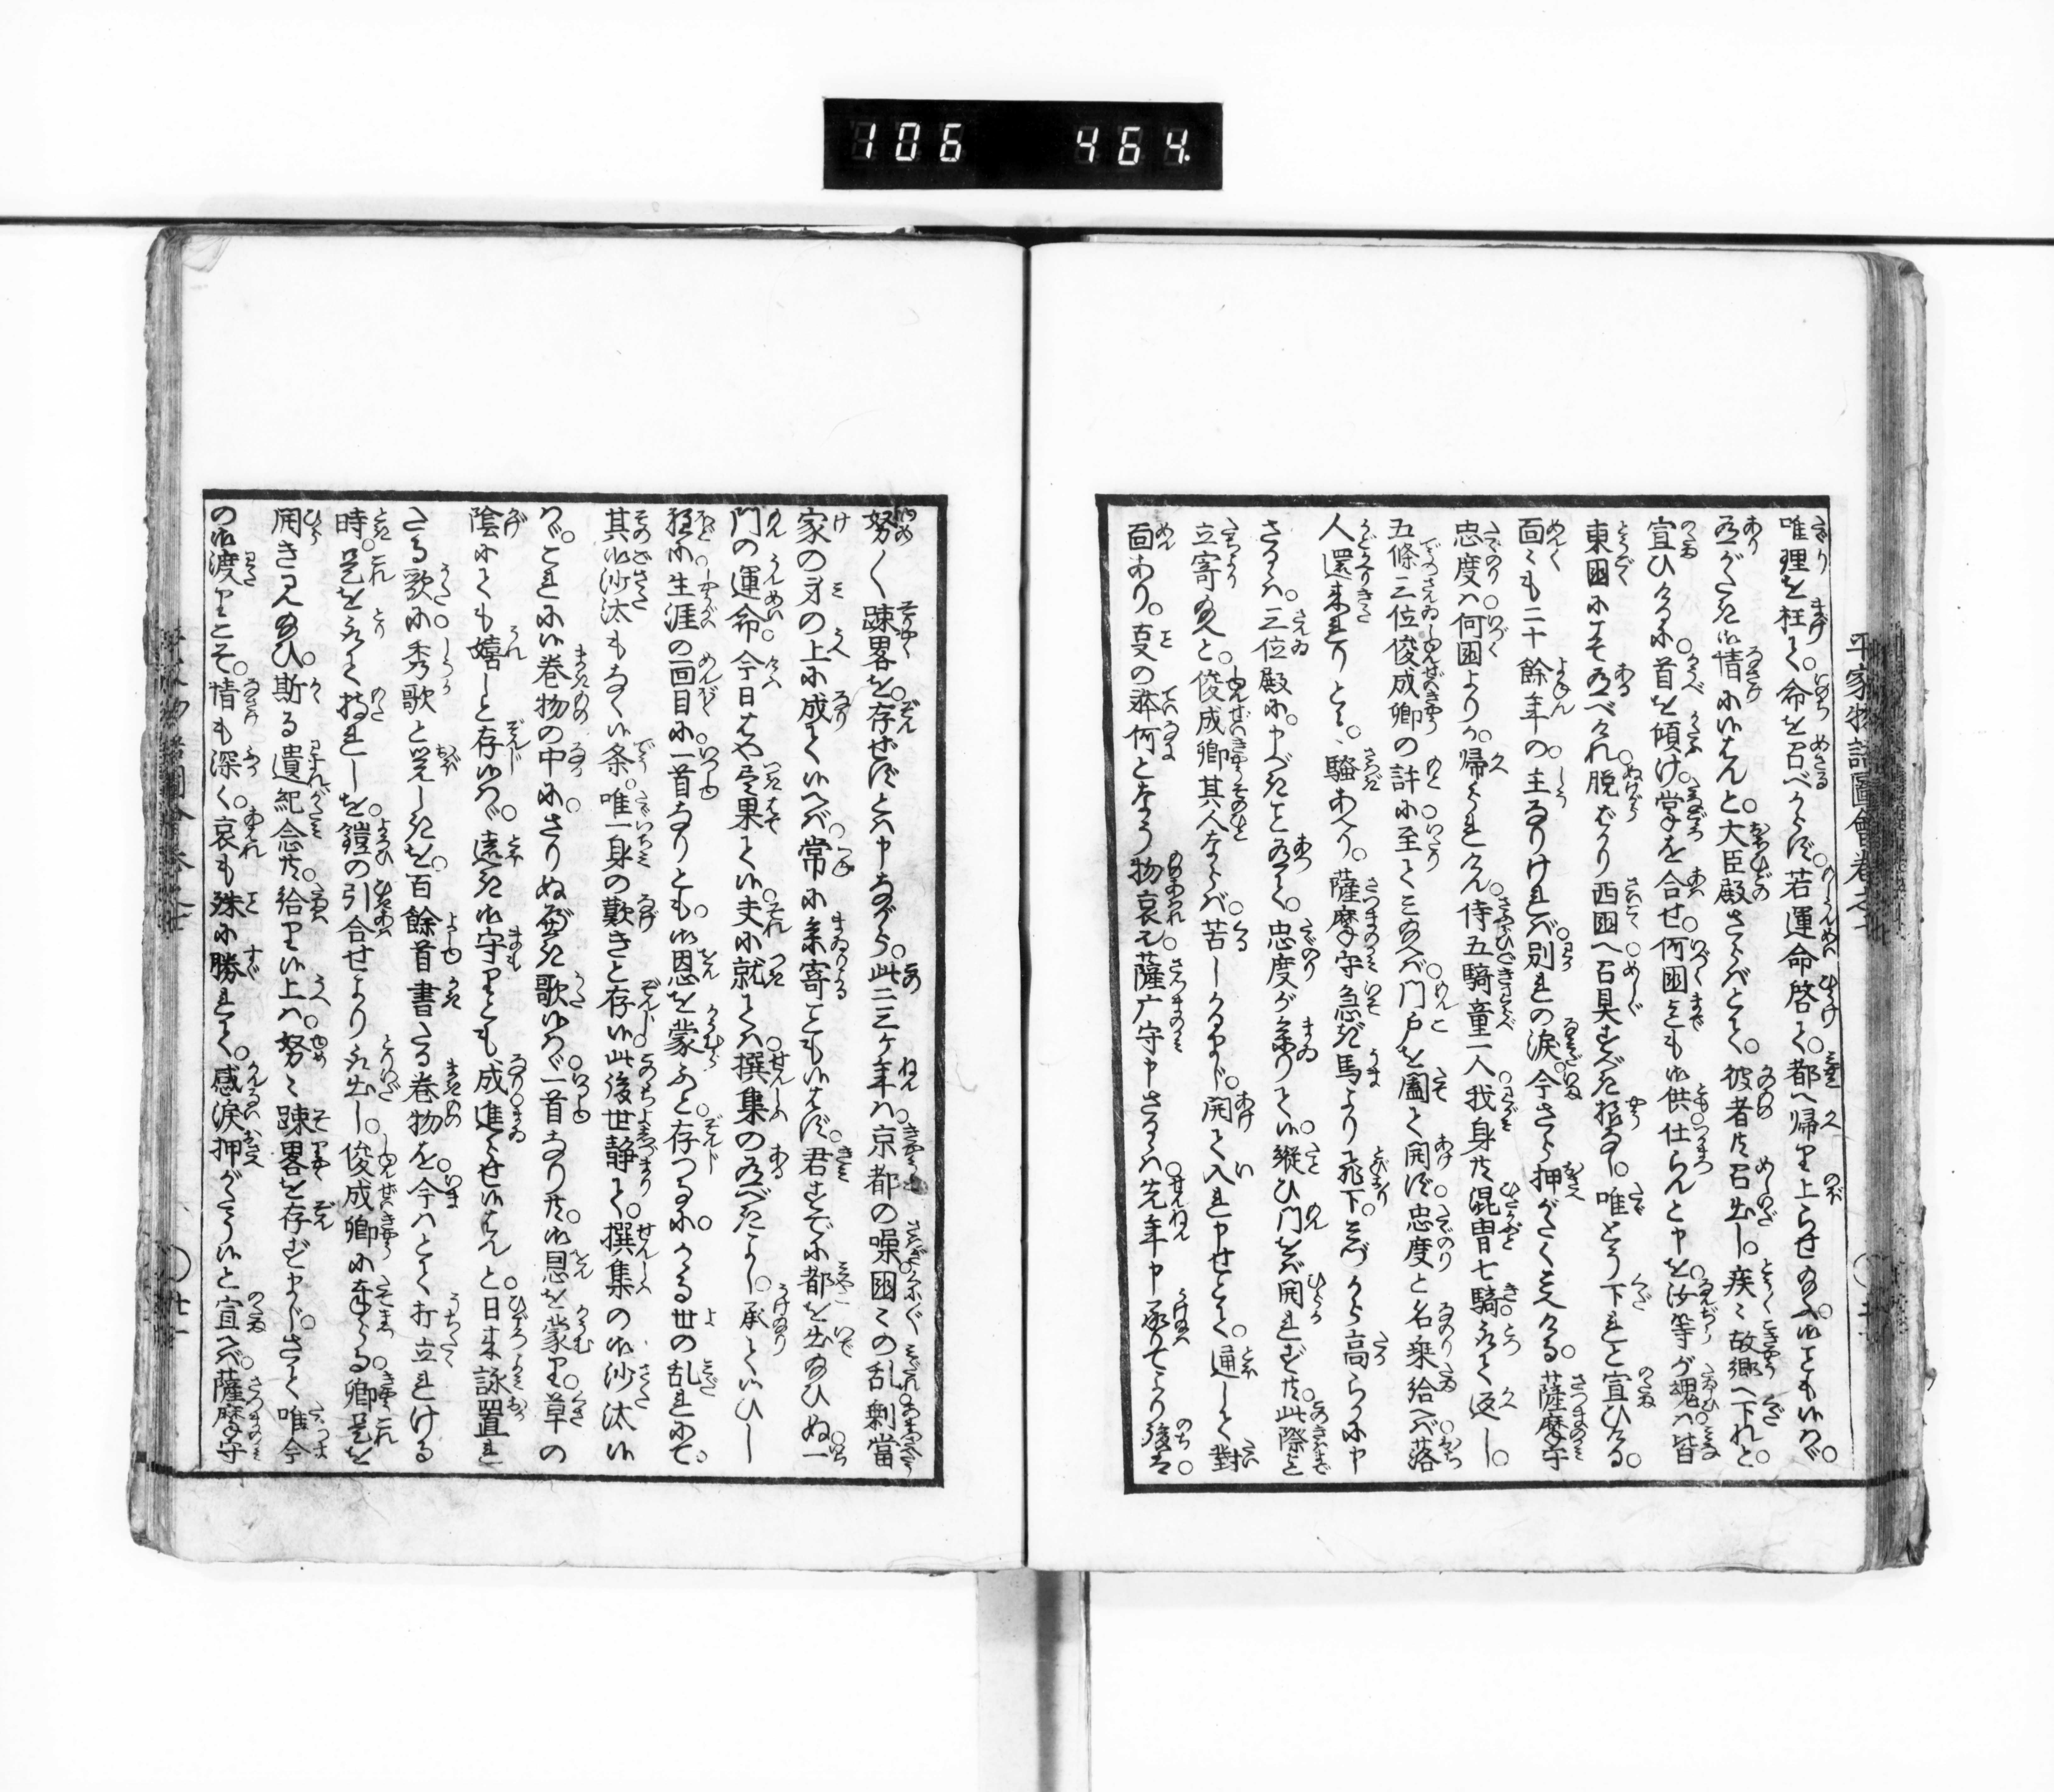 106 464.
平家物語圖會卷之七
唯理を枉て。命を召べからず。若運命啓て。都へ帰り上らせ給へ。御ことも候はゞ。
有がたき御情に候はんと。大臣殿さらばとて。彼者共召出し。疾々故郷へ下れと。
宣ひけるに。首を傾け掌を合せ。何国迄も御供仕らんと申を。汝等が魂は皆
東国にこそ有べけれ。脱がらばかり西国へ召具すべき様なし。唯とう下れと宣ひける。
面々も二十餘年の。主なりければ。別れの涙。今さら押がたく見えける。薩摩守
忠度は。何国よりか。帰られけん。侍五騎童一人。我身共混冑七騎。取て返し。
五條三位俊成卿の許に。至て見給へば。門戸を闔て開ず。忠度と名乗給へば。落
人還来れりとて。騒あへり。薩摩守急ぎ馬より飛下。みづから高らかに申
さるゝは。三位殿に。申べきこと有て。忠度が参りて候。縦ひ門をば開れず共。此際迄
立寄給へと。俊成卿其人ならば。苦しかるまじ。開て入れ申せとて。通して對
面あり。事の躰何となう物哀也。薩广守申さるゝは。先年申承りてより後は。
努々疎畧を。存ぜずとは申ながら。此二三ヶ年は。京都の噪。国々の乱。剰當
家の身の上に成て候へば。常に参寄ことも候はず。君すでに都を出給ひぬ。一
門の運命。今日はや尽果て候。夫に就ては。撰集の有べきよし。承て候ひし
程に。生涯の面目に。一首なりとも。御恩を蒙ふと。存つるに。かゝる世の乱れにて。
其御沙汰もなく候条。唯一身の歎きと存候。此後世静て。撰集の御沙汰候
はゞ。これに候巻物の中に。さりぬべき歌候はゞ。一首なり共。御恩を蒙り。草の
陰にても嬉しと存候はゞ。遠き御守りとも。成進らせ候はんと。日来詠置れ
たる歌に。秀歌と覚しきを。百餘首書たる巻物を。今はとて打立れける
時。是を取て持れしを。鎧の引合せより取出し。俊成卿に奉らる。卿是を
開き見給ひ。斯る遺紀念共。給り候上は。努々疎畧を存ずまじ。さても唯今
の御渡りこそ。情も深く。哀も殊に勝れて。感涙押がたう候と宣へば。薩摩守